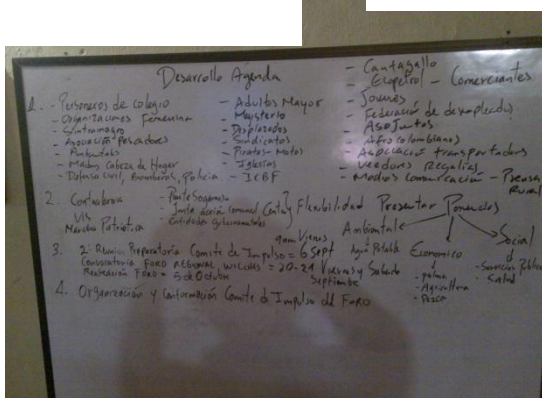 Desarrollo Agenda
1. - Personeros de colegio
- Organizaciones Femenina
- Sintrainagro
- Asociación Pescadores
- Ambientales
- Madres Cabeza de Hogar
- Defensa Civil, Bomberos, Policia
- Adultos Mayor
- Magisterio
- Desplazados
- Sindicatos
- Piratas - Motos
- Iglesias
- ICBF
- Cantagallo
- Ecopetrol - Comerciantes
- Jovenes
- Federación de desempleados
- Asojuntas
- Afrocolombianos
- Asociació transportadores
- Veedores Regalias
- Medios comunicación - Prensa
Rural
2.
Marcha Patriotica
- Puente Sogamoso
- Junta acción comunal
- Entidades gubernamentales
Flexibilidad Presentar Ponencias
Ambiental
Agua Potable
Economico
- palma
- Agricultura
- Pesca
Social
- Servicios Públicos
- Salud
3. 2: Reunion Preparatoria Comite de Impulso = 6 Sept
9am Viernes
Convocatoria Foro Regional Wilches = 20-21 Viernes y Sabado
Septiembre
Realización Foro = 5 de Octubre
4. Organización y Conformación Comite de Impulso del Foro